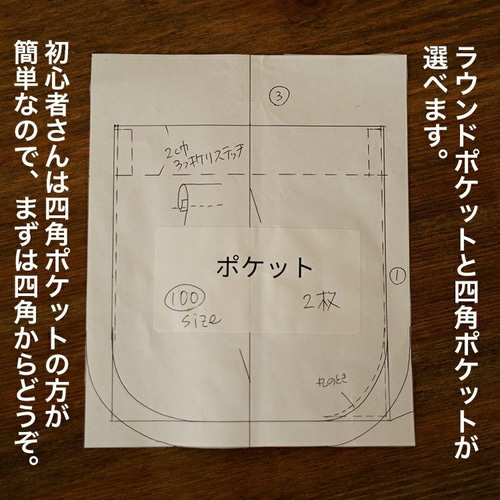 ラウンドポケットと四角ポケットが
選べます。
③
2巾
三つ折りステッチ
ポケット
100
size
2枚
①
丸のとき
初心者さんは四角ポケットの方が
簡単なので、まずは四角からどうぞ。